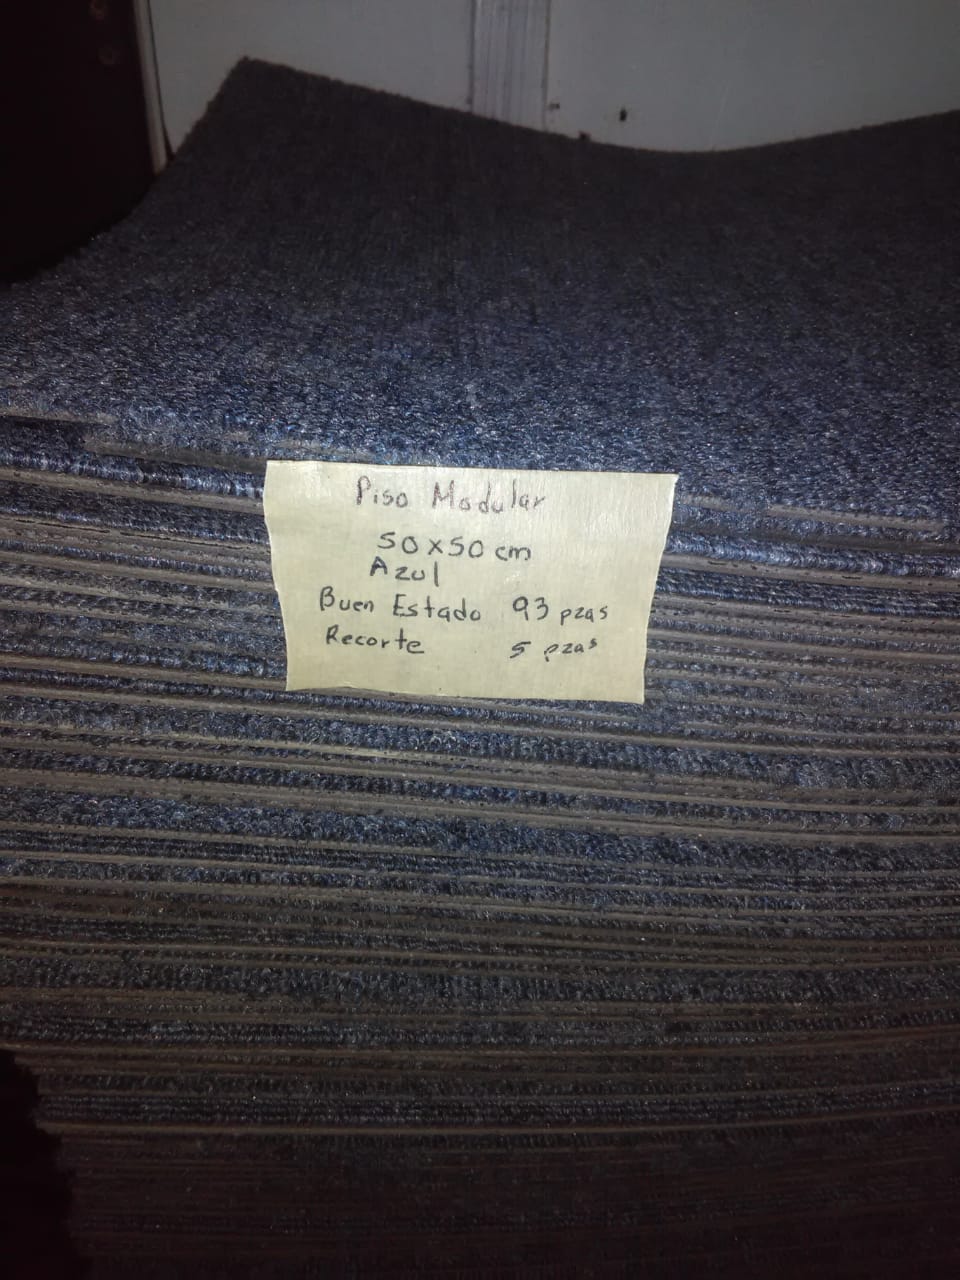 Piso Modular
50x50 cm
Azul
Buen Estado 93 pzas
Recorte 5 pzas